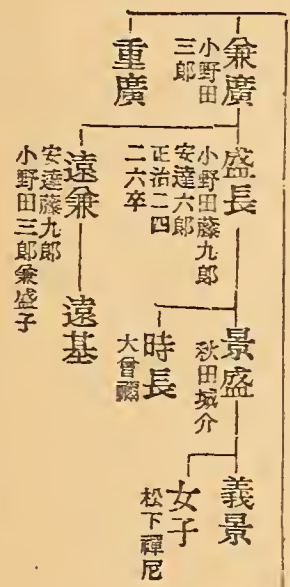 兼廣
小野田
三郎
重廣
盛長
小野田藤九郎
安達六郎
正治二四
二六卒
遠兼
安達藤九郎
小野田三郎兼盛子
遠基
景盛
秋田城介
時長
大曾禰
義景
女子
松下禪尼